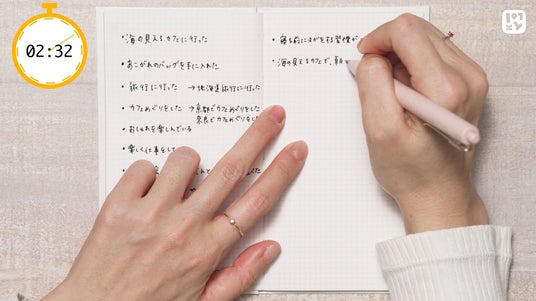 02:32
・海の見えるカフェに行った
・あこがれのバッグを手に入れた
・旅行に行った →北海道旅行に行った
・カフェめぐりをした →京都でカフェめぐりをした
奈良でカフェめぐりをした
・おしゃれを楽しんでいる
・楽しく仕事をして
・寝る前にヨガをする習慣が
・海の見えるカフェで、